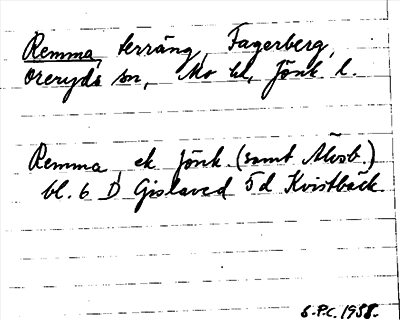 Remma, terräng, Fagerberg,
Öreryds sn, Mo hd, Jönk. l.
Remma, ek. Jönk. (samt Älvsb.)
bl. 6 D Gislaved 5d Kvistbäck
S.P.C. 1958.